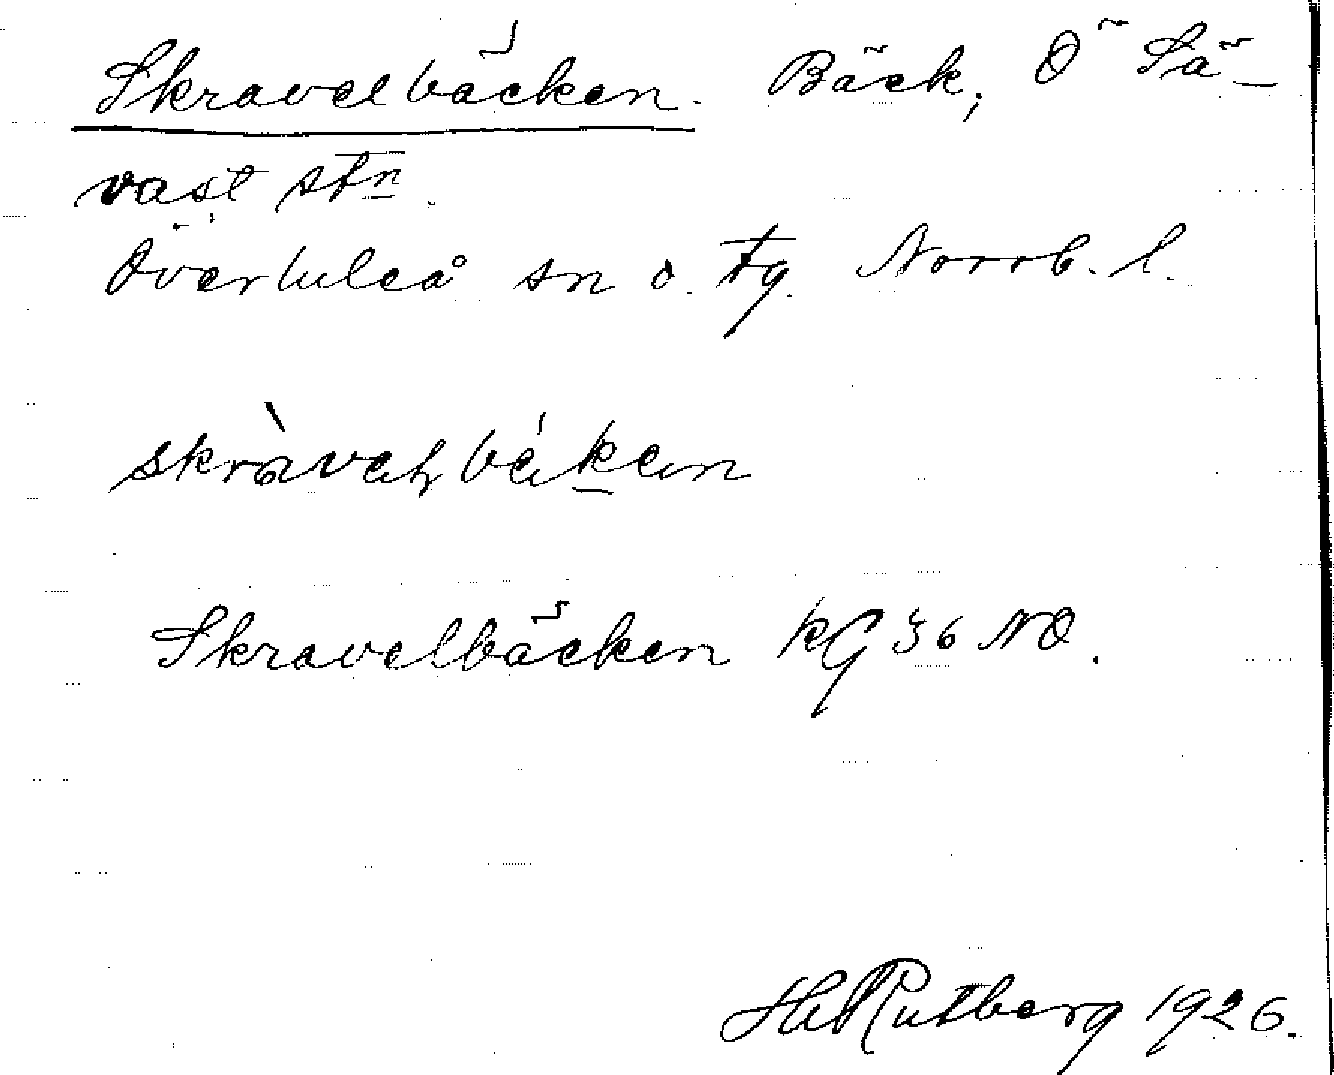 Skravelbäcken. Bäck; Ö Sä-
vast stn.
Överluleå sn o. tg. Norrb. l.
skràvełbä́ken
Skravelbäcken KG 36 NO.
H Rutberg 1926.